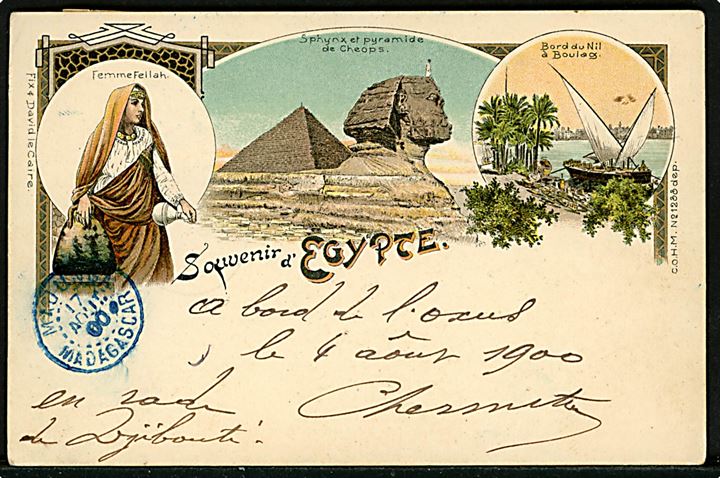 Sphynx et pyramide
de Cheops.
Bord du Nil
à Boulaq.
Femme Fellah.
Fix & David le Caire.
C.O.H.M. Nº 1288 dép.
Souvenir d'EGYPTE.
17
AOUT
00
MADAGASCAR
a bord de l'oxus
le 4 août 1900
en rade
de Djibouti.